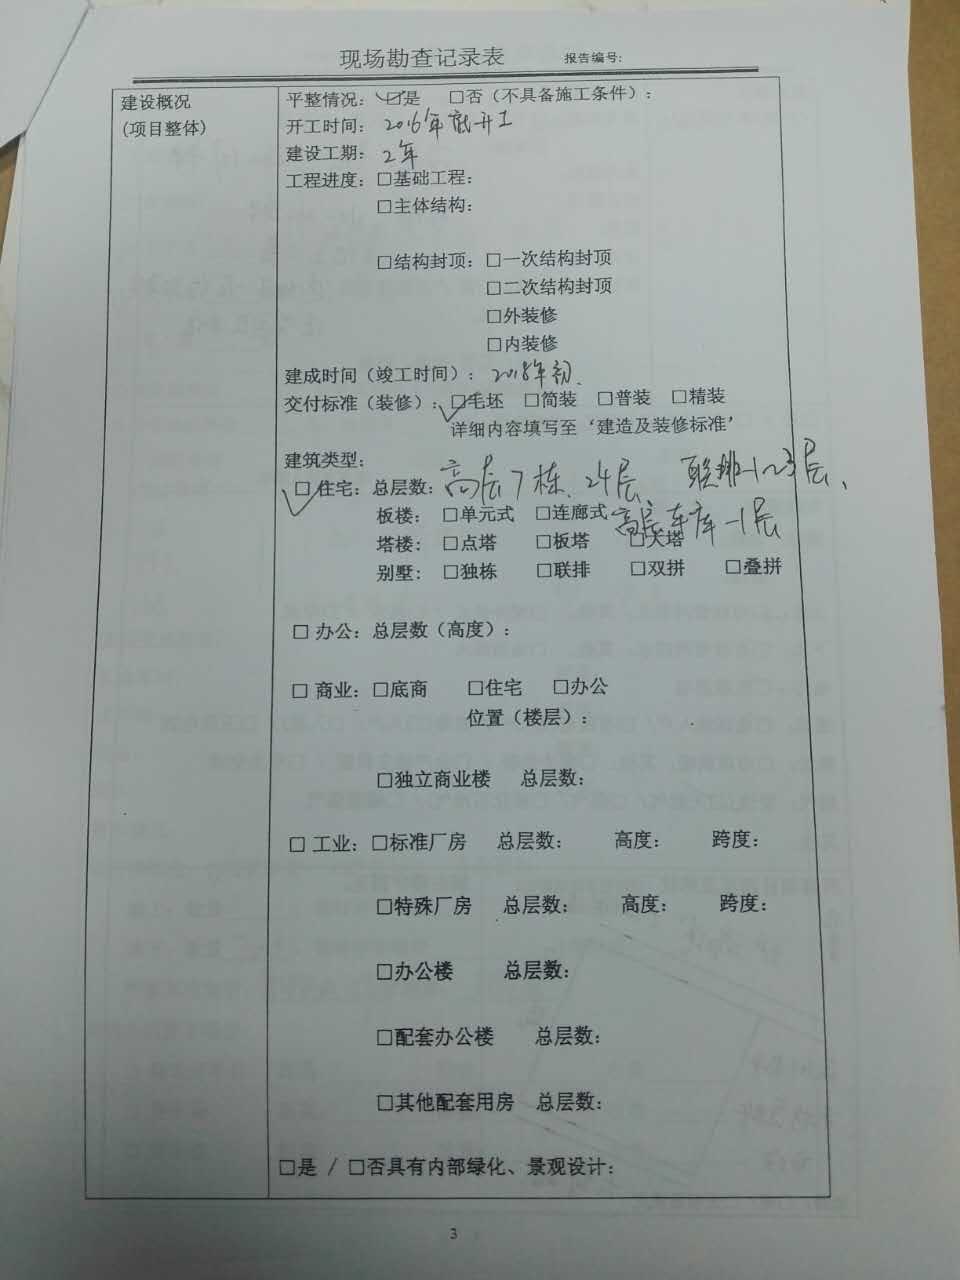 现场勘查记录表 报告编号:
建设概况
(项目整体)
平整情况: ☑是 □否(不具备施工条件):
开工时间: 2016年底开工
建设工期: 2年
工程进度: □基础工程:
□主体结构:
□结构封顶: □一次结构封顶
□二次结构封顶
□外装修
□内装修
建成时间(竣工时间): 2018年初.
交付标准(装修): ☑毛坯 □简装 □普装 □精装
详细内容填写至‘建造及装修标准’
建筑类型:
☑住宅: 总层数: 高层7栋、24层、 联排-1~3层、
板楼: □单元式 □连廊式 高层车库-1层
塔楼: □点塔 □板塔 □大塔
别墅: □独栋 □联排 □双拼 □叠拼
□办公: 总层数(高度):
□商业: □底商 □住宅 □办公
位置(楼层):
□独立商业楼 总层数:
□工业: □标准厂房 总层数: 高度: 跨度:
□特殊厂房 总层数: 高度: 跨度:
□办公楼 总层数:
□配套办公楼 总层数:
□其他配套用房 总层数:
□是 / □否具有内部绿化、景观设计:
3